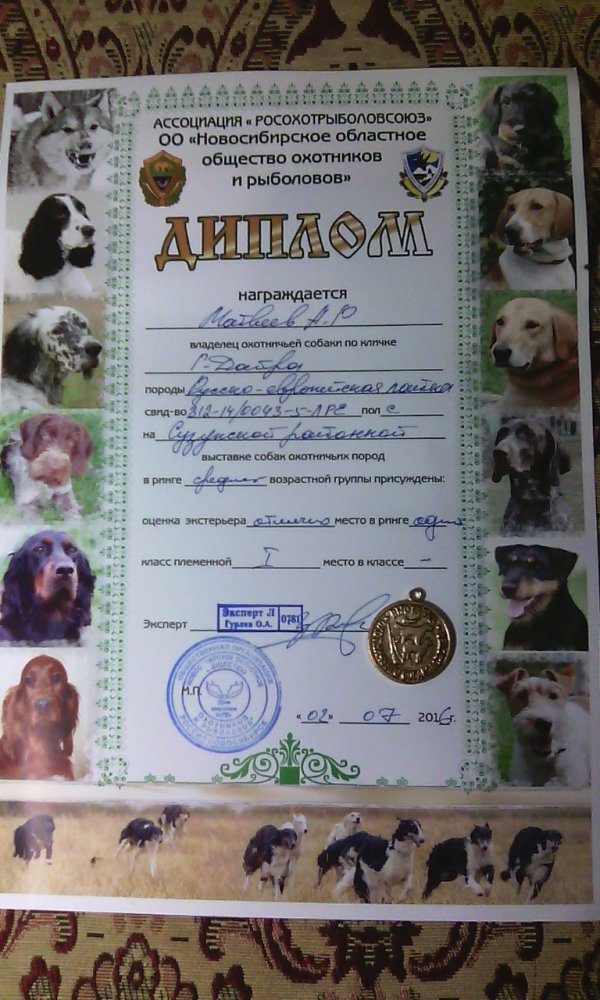 АССОЦИАЦИЯ « РОСОХОТРЫБОЛОВСОЮЗ»
ОО «Новосибирское областное
общество охотников
и рыболовов»
ДИПЛОМ
награждается
Матвеев А.Ю
владелец охотничьей собаки по кличке
породы Русско-европейская лайка
свид-во 312-14/0043-5-ЛРЕ пол с
на Сузунской районной
выставке собак охотничьих пород
в ринге средней возрастной группы присуждены:
оценка экстерьера отлично место в ринге один
класс племенной I место в классе –
Эксперт
Эксперт Л 0781
Гураев О.А.
М.П.
« 02 » 07 2016г.